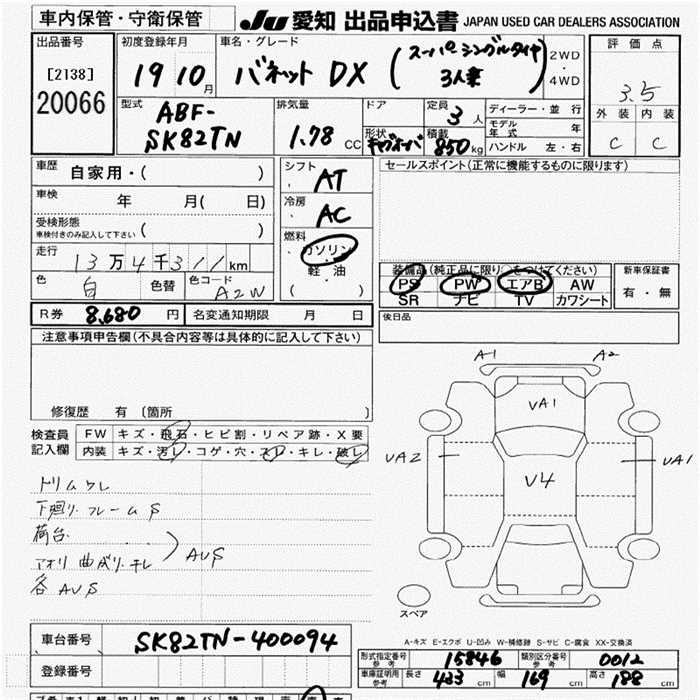 車内保管・守衛保管
JU 愛知 出品申込書 JAPAN USED CAR DEALERS ASSOCIATION
出品番号
[2138]
20066
初度登録年月
19 10月
車名・グレード
バネット DX (スーパーシングルタイヤ 3人乗)
2WD・4WD
評価点
3.5
外装 内装
C C
型式
ABF-
SK82TN
排気量
1.78 CC
ドア
形状
定員
3人
積載
850kg
ディーラー・並行
モデル年式 年
ハンドル 左・右
車歴 自家用・( )
車検 年 月( 日)
受検形態
車検付きのみ記入して下さい ( )
走行 13万4千311km
色 白 色替 色コード A2W
シフト
AT
冷房
AC
燃料
ガソリン
軽油
( )
セールスポイント(正常に機能するものに限ります)
装備品(純正品に限り○をつけてください)
PS PW エアB AW
SR ナビ TV カワシート
新車保証書
有・無
R券 8,680円 名変通知期限 月 日
後日品
注意事項申告欄(不具合内容等は具体的に記入して下さい)
修復歴 有 〔箇所 〕
検査員記入欄
FW キズ・飛石・ヒビ割・リペア跡・X要
内装 キズ・汚レ・コゲ・穴・スレ・キレ・破レ
トリムワレ
下廻り.フレームS
荷台
アオリ曲がり.キレ
AUS
各AUS
A1 A2
UA1
UA2 V4 UA1
スペア
A-キズ E-エクボ U-凹み W-補修跡 S-サビ C-腐食 XX-交換済
車台番号 SK82TN-400094
登録番号
形式指定番号 参考 15846 類別区分番号 参考 0012
車庫証明用 参考 長さ 433cm 幅 169cm 高さ 188cm